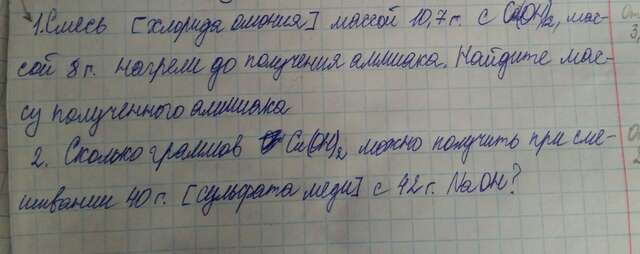 1. Смесь [хлорида амония] массой 10,7 г. с Ca(OH)₂, мас-
сой 8 г. нагрели до получения аммиака. Найдите мас-
су полученного аммиака
2. Сколько граммов Cu(OH)₂ можно получить при сме-
шивании 40 г. [сульфата меди] с 42 г. NaOH?